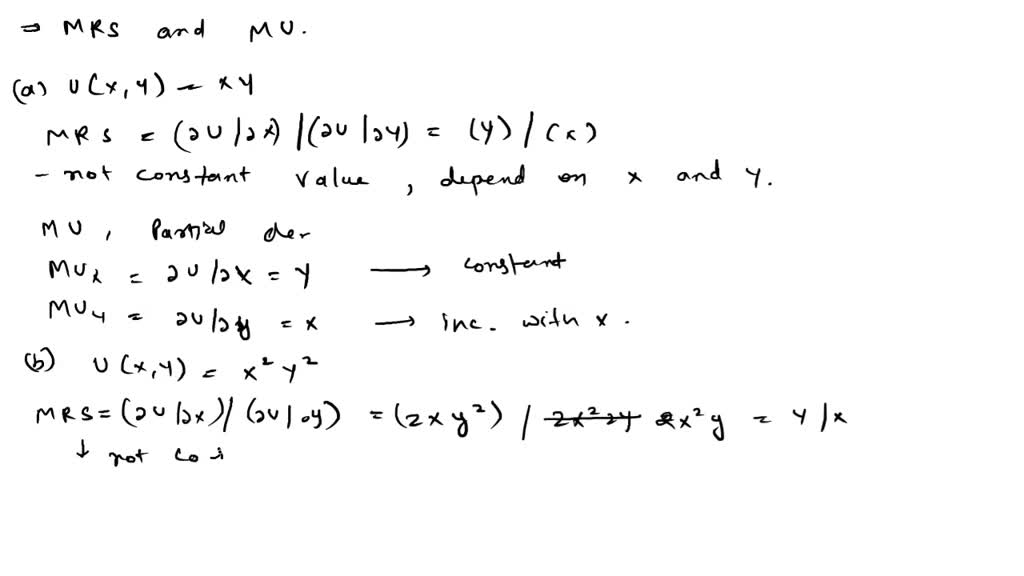 ⇒ MRS and MU.
(a) U(x,y) = xy
MRS = (∂U/∂x)/(∂U/∂y) = (y)/(x)
- not constant value, depend on x and y.
MU, Partial der
MUx = ∂U/∂x = y → constant
MUy = ∂U/∂y = x → inc. with x.
(b) U(x,y) = x²y²
MRS = (∂U/∂x)/(∂U/∂y) = (2xy²) / 2x²y = y/x
↓ not co